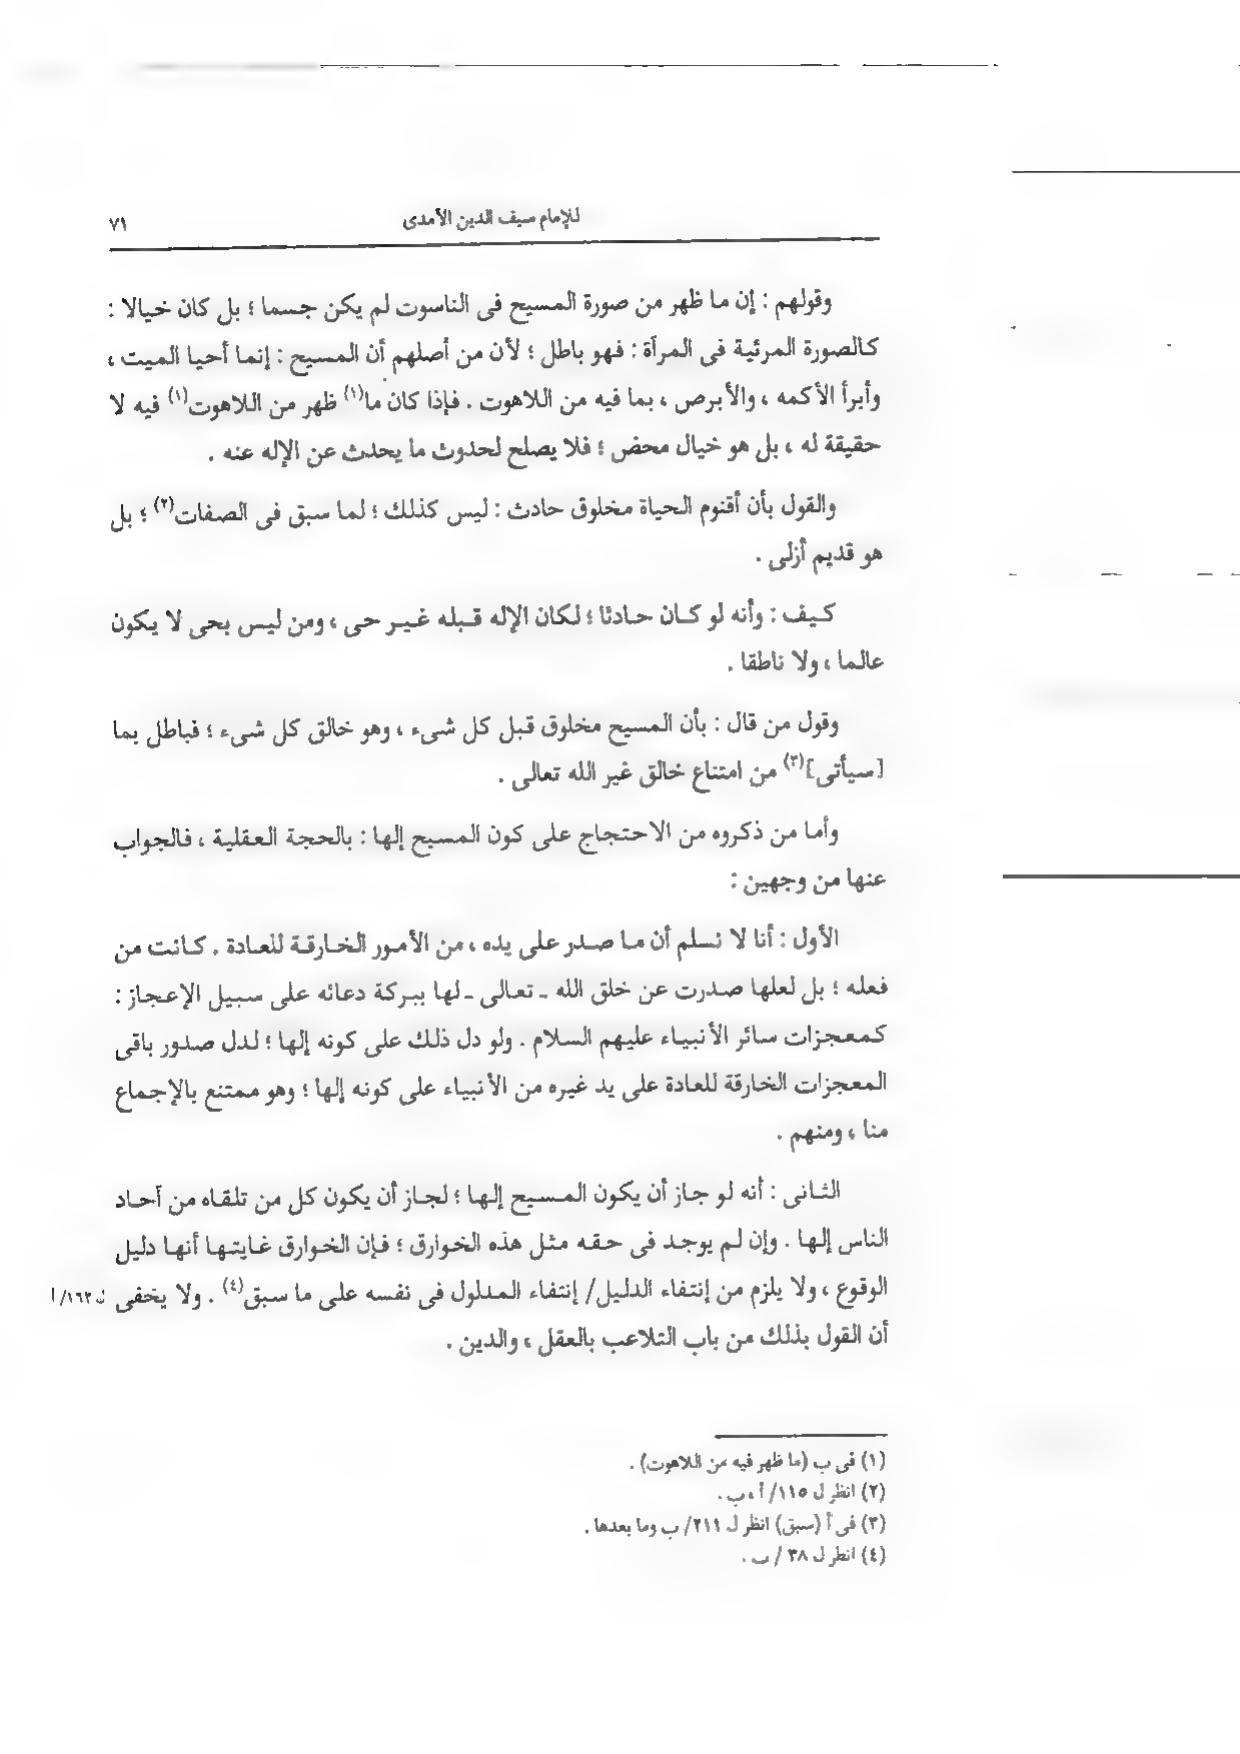 للإمام سيف الدين الآمدى
٧١
وقولهم : إن ما ظهر من صورة المسيح فى الناسوت لم يكن جسما ؛ بل كان خيالا :
كالصورة المرئية فى المرآة : فهو باطل ؛ لأن من أصلهم أن المسيح : إنما أحيا الميت ،
وأبرأ الأكمه ، والأبرص ، بما فيه من اللاهوت . فإذا كان ما(١) ظهر من اللاهوت(١) فيه لا
حقيقة له ، بل هو خيال محض ؛ فلا يصلح لحدوث ما يحدث عن الإله عنه .
والقول بأن أقنوم الحياة مخلوق حادث : ليس كذلك ؛ لما سبق فى الصفات(٢) ؛ بل
هو قديم أزلى .
كيف : وأنه لو كان حادثا ؛ لكان الإله قبله غير حى ، ومن ليس بحى لا يكون
عالما ، ولا ناطقا .
وقول من قال : بأن المسيح مخلوق قبل كل شىء ، وهو خالق كل شىء ؛ فباطل بما
[سيأتى](٣) من امتناع خالق غير الله تعالى .
وأما من ذكروه من الاحتجاج على كون المسيح إلها : بالحجة العقلية ، فالجواب
عنها من وجهين :
الأول : أنا لا نسلم أن ما صدر على يده ، من الأمور الخارقة للعادة . كانت من
فعله ؛ بل لعلها صدرت عن خلق الله ـ تعالى ـ لها ببركة دعائه على سبيل الإعجاز :
كمعجزات سائر الأنبياء عليهم السلام . ولو دل ذلك على كونه إلها ؛ لدل صدور باقى
المعجزات الخارقة للعادة على يد غيره من الأنبياء على كونه إلها ؛ وهو ممتنع بالإجماع
منا ، ومنهم .
الثانى : أنه لو جاز أن يكون المسيح إلها ؛ لجاز أن يكون كل من تلقاه من آحاد
الناس إلها . وإن لم يوجد فى حقه مثل هذه الخوارق ؛ فإن الخوارق غايتها أنها دليل
الوقوع ، ولا يلزم من إنتفاء الدليل/ إنتفاء المدلول فى نفسه على ما سبق(٤) . ولا يخفى ل١٦٢/ أ
أن القول بذلك من باب التلاعب بالعقل ، والدين .
(١) فى ب (ما ظهر فيه من اللاهوت) .
(٢) انظر ل ١١٥/ أ ، ب .
(٣) فى أ (سبق) انظر ل ٢١١/ ب وما بعدها .
(٤) انظر ل ٣٨ / ب .